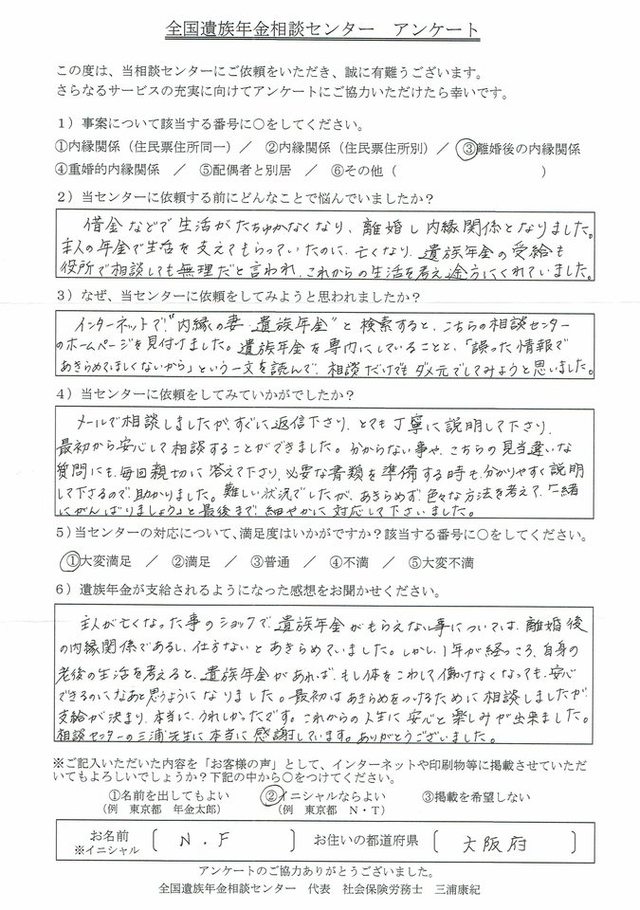 全国遺族年金相談センター　アンケート
この度は、当相談センターにご依頼をいただき、誠に有難うございます。
さらなるサービスの充実に向けてアンケートにご協力いただけたら幸いです。
1）事案について該当する番号に○をしてください。
①内縁関係（住民票住所同一）／　②内縁関係（住民票住所別）／　③離婚後の内縁関係
④重婚的内縁関係　／　⑤配偶者と別居　／　⑥その他（　　　　　　　　）
2）当センターに依頼する前にどんなことで悩んでいましたか？
借金などで生活がたちゆかなくなり、離婚し内縁関係となりました。
主人の年金で生活を支えてもらっていたのに、亡くなり、遺族年金の受給も
役所で相談しても無理だと言われ、これからの生活を考え途方にくれていました。
3）なぜ、当センターに依頼をしてみようと思われましたか？
インターネットで、"内縁の妻 遺族年金"と検索すると、こちらの相談センター
のホームページを見付けました。遺族年金を専門にしていることと、「誤った情報で
あきらめてほしくないから」という一文を読んで、相談だけでもダメ元でしてみようと思いました。
4）当センターに依頼をしてみていかがでしたか？
メールで相談しましたが、すぐに返信下さり、とても丁寧に説明して下さり、
最初から安心して相談することができました。分からない事や、こちらの見当違いな
質問にも、毎回親切に答えて下さり、必要な書類を準備する時も分かりやすく説明
して下さるので助かりました。難しい状況でしたが、あきらめず色々な方法を考えて、「一緒
にがんばりましょう」と最後まで細やかに対応して下さいました。
5）当センターの対応について、満足度はいかがですか？該当する番号に○をしてください。
①大変満足　／　②満足　／　③普通　／　④不満　／　⑤大変不満
6）遺族年金が支給されるようになった感想をお聞かせください。
主人が亡くなった事のショックで、遺族年金がもらえない事については、離婚後
の内縁関係であるし、仕方ないとあきらめていました。しかし、1年が経つころ、自身の
老後の生活を考えると、遺族年金があれば、もし体をこわして働けなくなっても、安心
できるのになあと思うようになりました。最初はあきらめをつけるために相談しましたが
支給が決まり、本当に、うれしかったです。これからの人生に安心と楽しみが出来ました。
相談センターの三浦先生に本当に感謝しています。ありがとうございました。
※ご記入いただいた内容を「お客様の声」として、インターネットや印刷物等に掲載させていただ
いてもよろしいでしょうか？下記の中から○をつけてください。
①名前を出してもよい　②イニシャルならよい　③掲載を希望しない
（例　東京都　年金太郎）　（例　東京都　N・T）
お名前　〔　N．F　〕　お住いの都道府県　〔　大阪府　〕
※イニシャル
アンケートのご協力ありがとうございました。
全国遺族年金相談センター　代表　社会保険労務士　三浦康紀